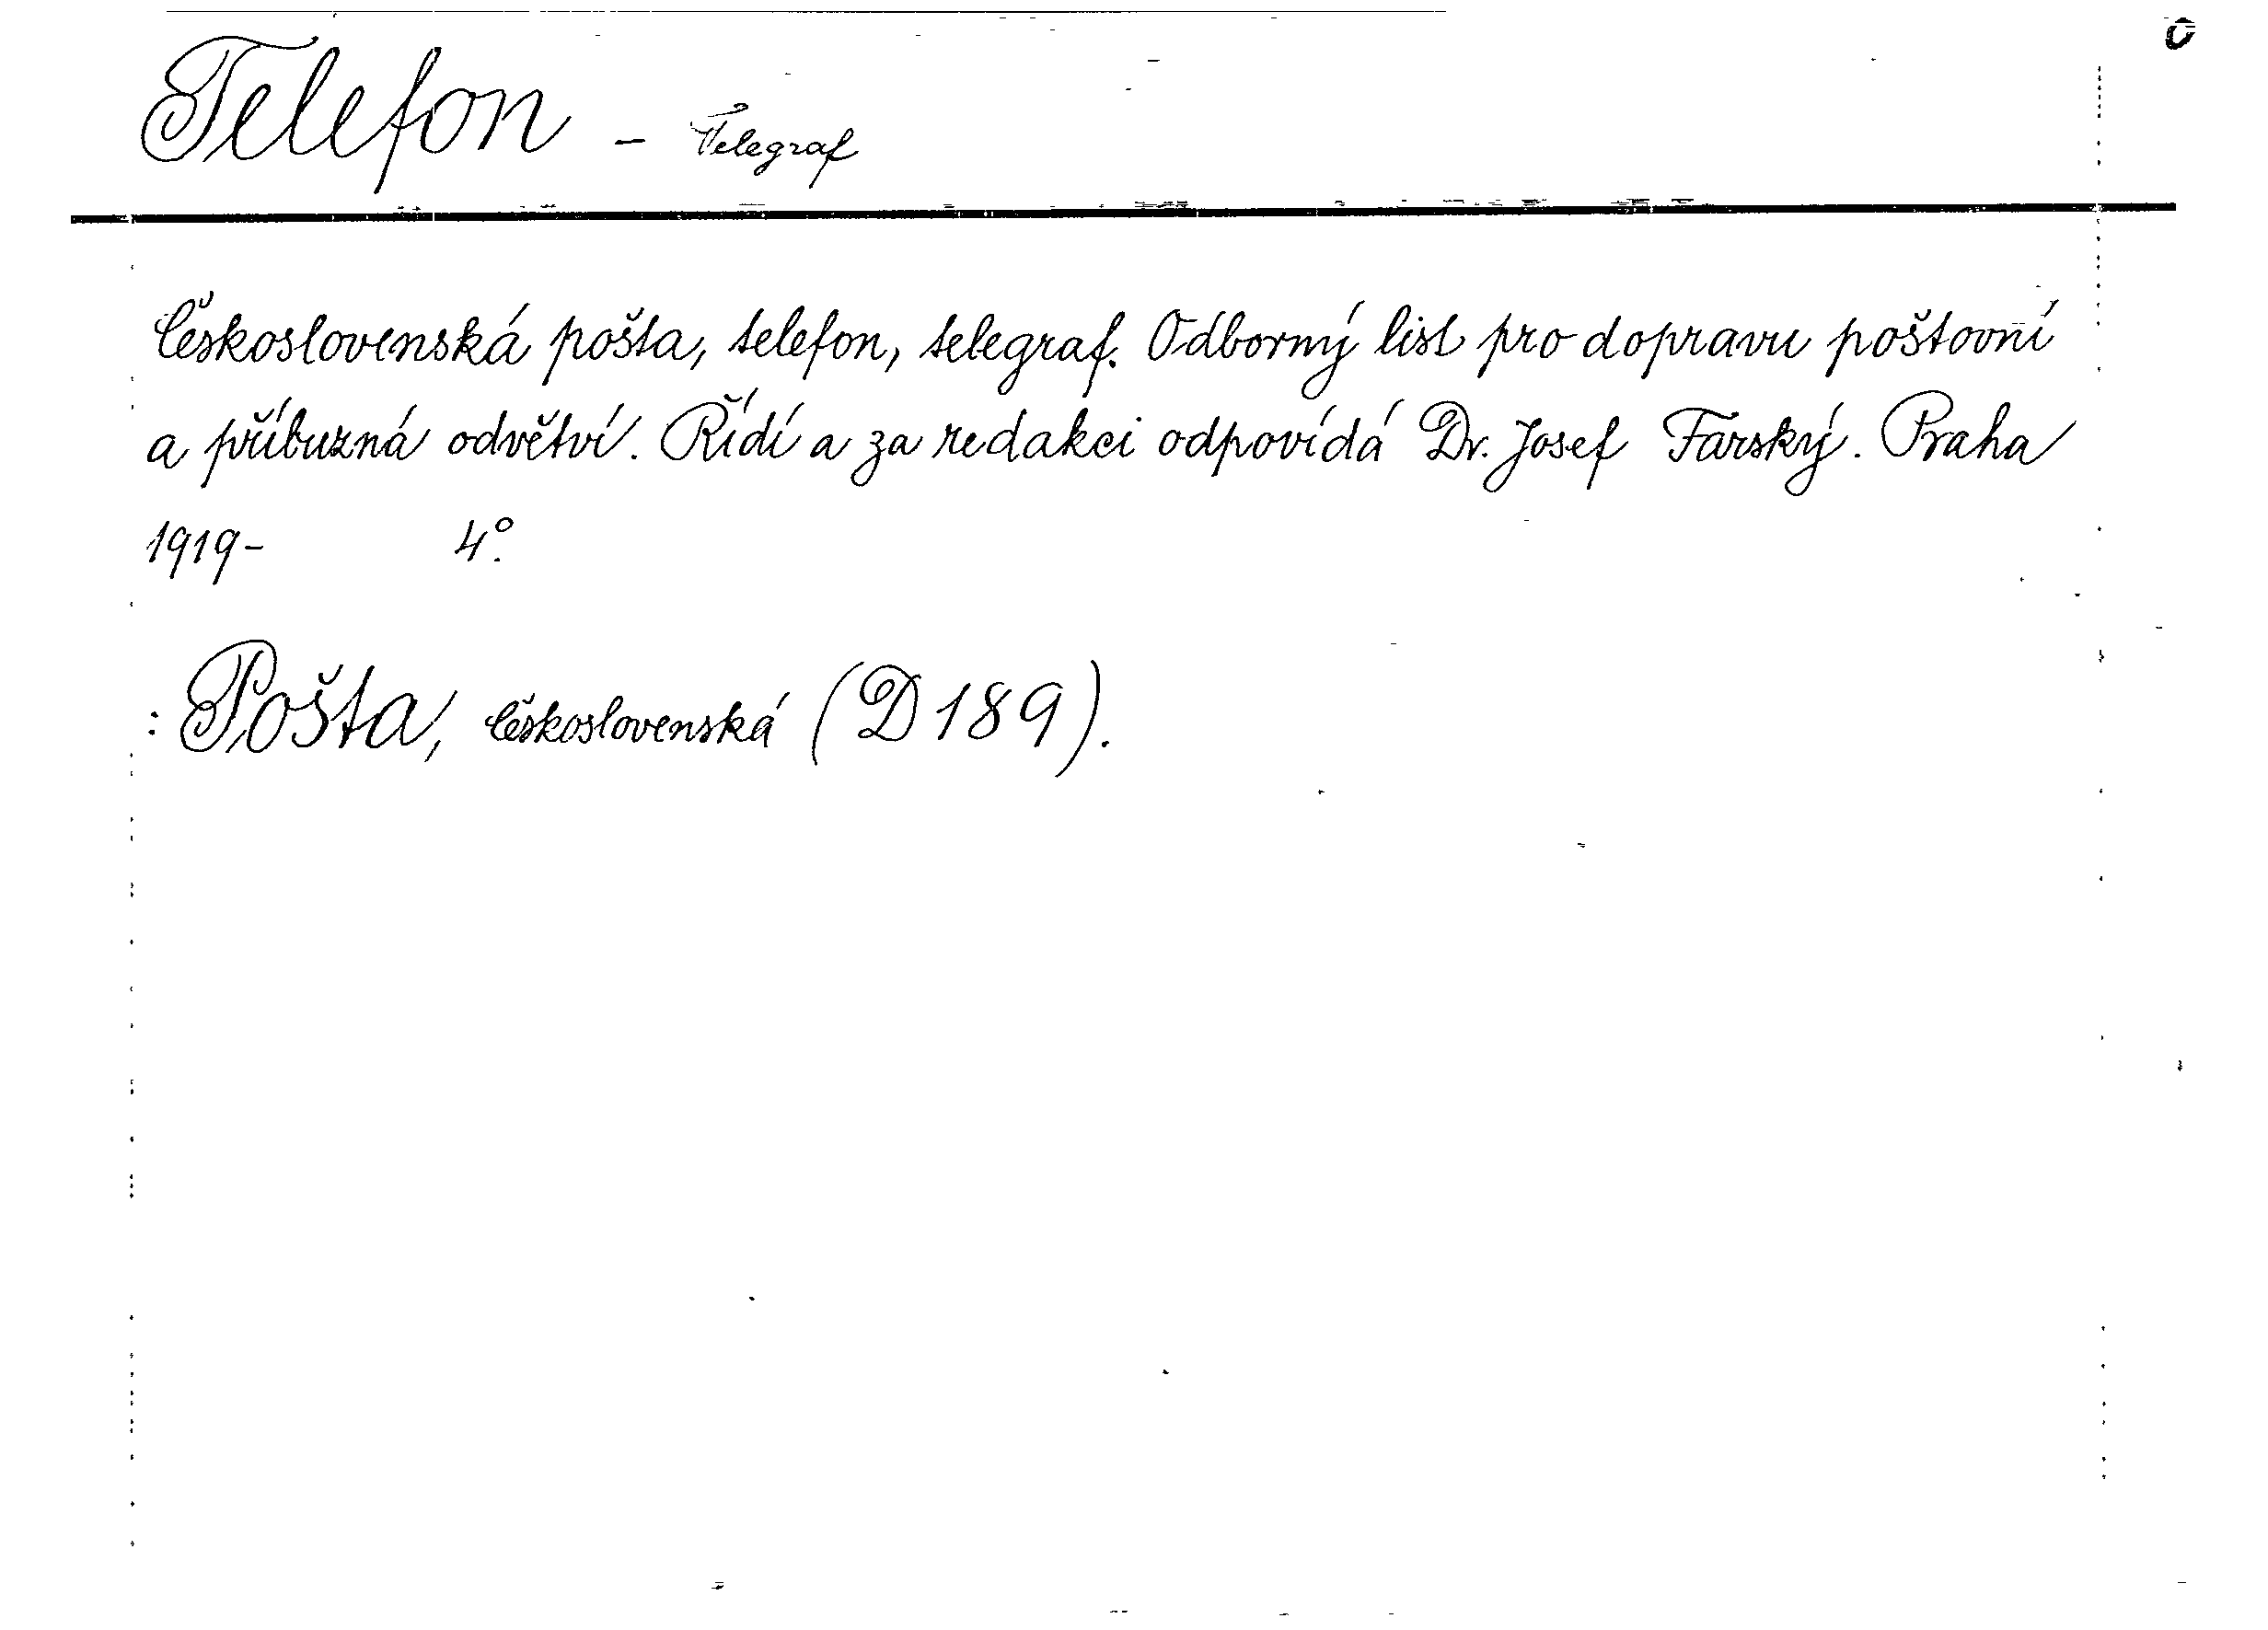 Telefon - Telegraf
Československá pošta, telefon, telegraf. Odborný list pro dopravu poštovní
a příbuzná odvětví. Řídí a za redakci odpovídá Dr. Josef Farský. Praha
1919- 4°.
: Pošta, československá (D 189).